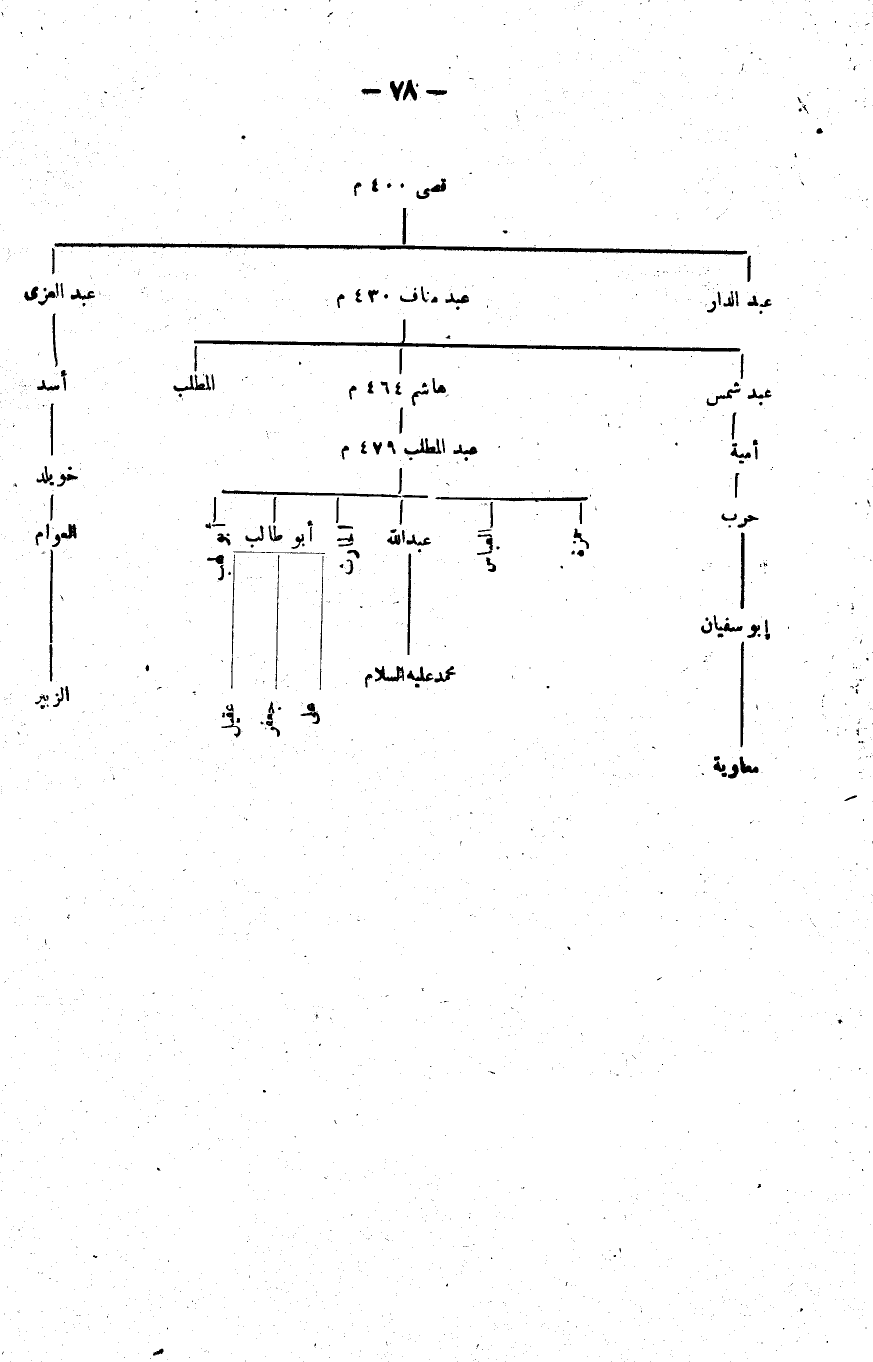 — ٧٨ —
قصى ٤٠٠ م
عبد الدار
عبد مناف ٤٣٠ م
عبد العزى
عبد شمس
هاشم ٤٦٤ م
المطلب
أسد
أمية
عبد المطلب ٤٧٩ م
خويلد
حرب
حمزة
العباس
عبدالله
الحارث
أبو طالب
أبو لهب
العوام
إبو سفيان
محمد عليه السلام
الزبير
على
جعفر
عقيل
معاوية